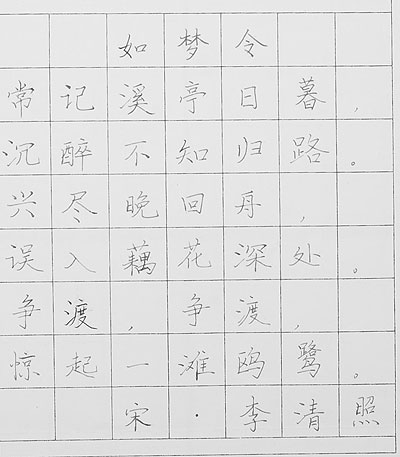 如梦令
常记溪亭日暮，
沉醉不知归路。
兴尽晚回舟，
误入藕花深处。
争渡，争渡，
惊起一滩鸥鹭。
宋·李清照